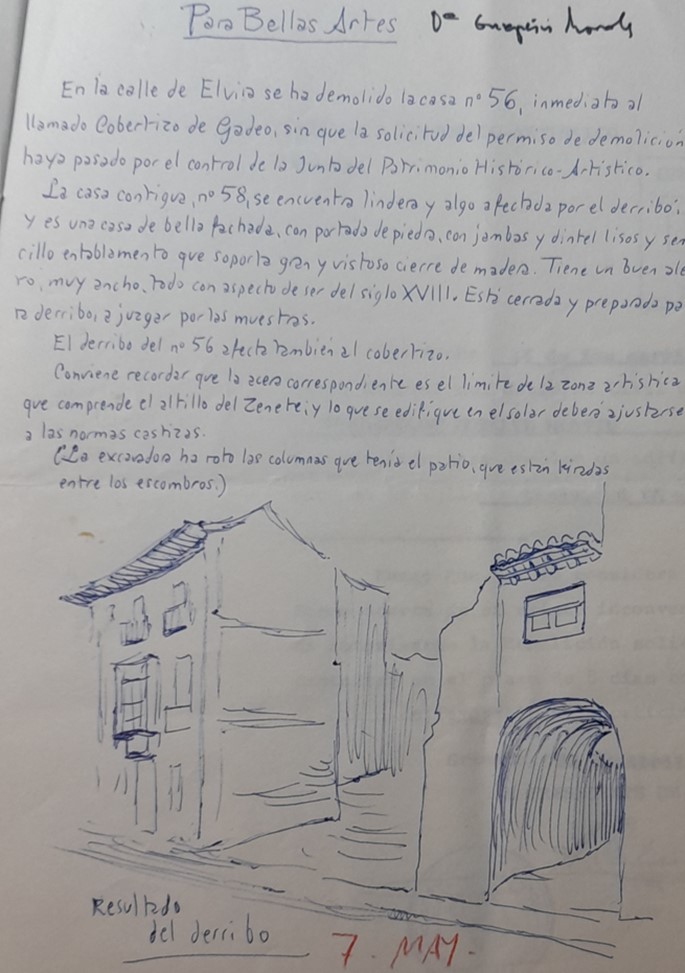 Para Bellas Artes Dª
En la calle de Elvira se ha demolido la casa nº 56, inmediata al
llamado Cobertizo de Gadeo, sin que la solicitud del permiso de demolición
haya pasado por el control de la Junta del Patrimonio Histórico-Artístico.
La casa contigua, nº 58, se encuentra lindera y algo afectada por el derribo.
Y es una casa de bella fachada, con portada de piedra, con jambas y dintel lisos y sen
cillo entablamento que soporta gran y vistoso cierre de madera. Tiene un buen ale
ro, muy ancho, todo con aspecto de ser del siglo XVIII. Está cerrada y preparada pa
ra derribo, a juzgar por las muestras.
El derribo del nº 56 afecta también al cobertizo.
Conviene recordar que la acera correspondiente es el límite de la zona artística
que comprende el altillo del Zenete; y lo que se edifique en el solar deberá ajustarse
a las normas castizas.
(La excavadora ha roto las columnas que tenía el patio, que están tiradas
entre los escombros.)
Resultado
del derribo
7. MAY.